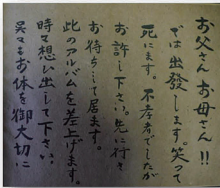 お父さんお母さん!!
では出發します。笑って
死にます。不孝者でしたが
お許し下さい。先に行き
お待ちして居ます。
此のアルバムを差上げます。
時て想ひ出して下さい。
呉々もお体を御大切に